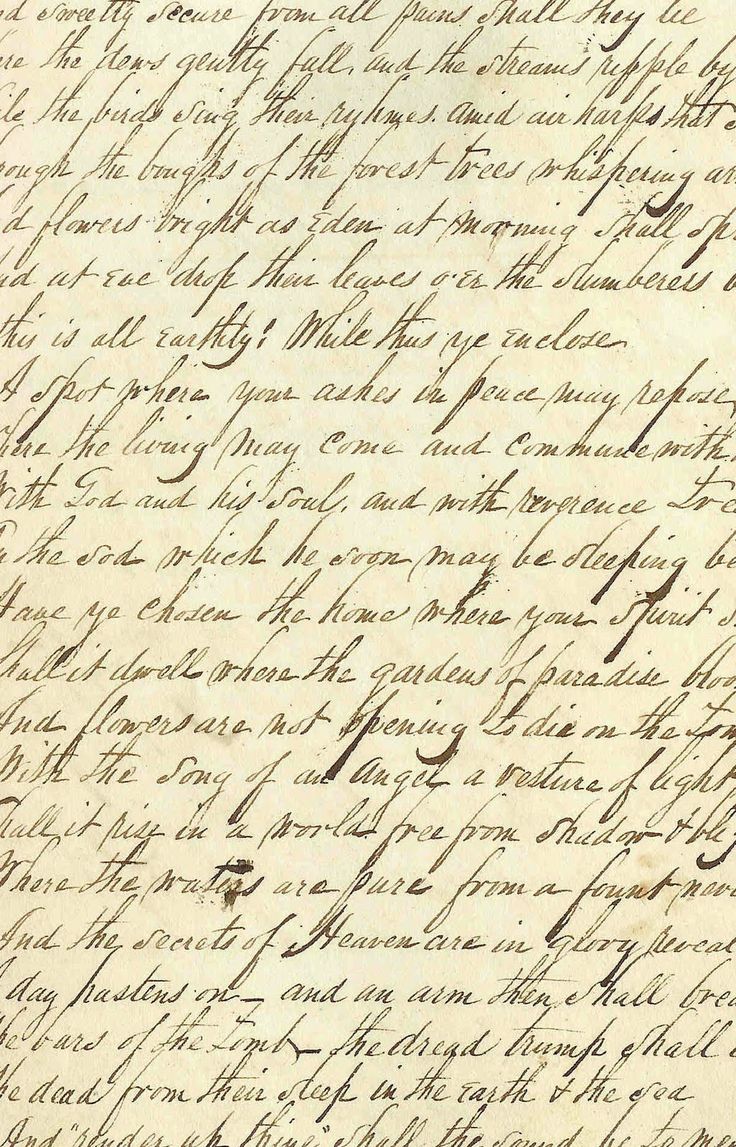 nd sweetly secure from all pains shall they lie
re the dews gently fall, and the streams ripple by
ile the birds sing their ryhmes amid air harps that s
rough the boughs of the forest trees whispering ar
d flowers bright as Eden at morning shall spr
nd at eve drop their leaves o'er the slumberess b
this is all Earthly! While thus ye enclose
A spot where your ashes in peace may repose,
here the living may come and commune with
With God and his soul, and with reverence tre
On the sod which he soon may be sleeping be
Have ye chosen the home where your spirit s
Shall it dwell where the gardens of paradise bloo
And flowers are not opening to die on the Tom
With the song of an angel a vesture of light
Shall it rise in a world free from shadow & bli
Where the waters are pure from a fount neve
And the secrets of Heaven are in glory reveal
day hastens on — and an arm then shall brea
he bars of the Tomb — the dread trump shall
he dead from their sleep in the Earth & the sea
And "render up thine" shall the sound be to